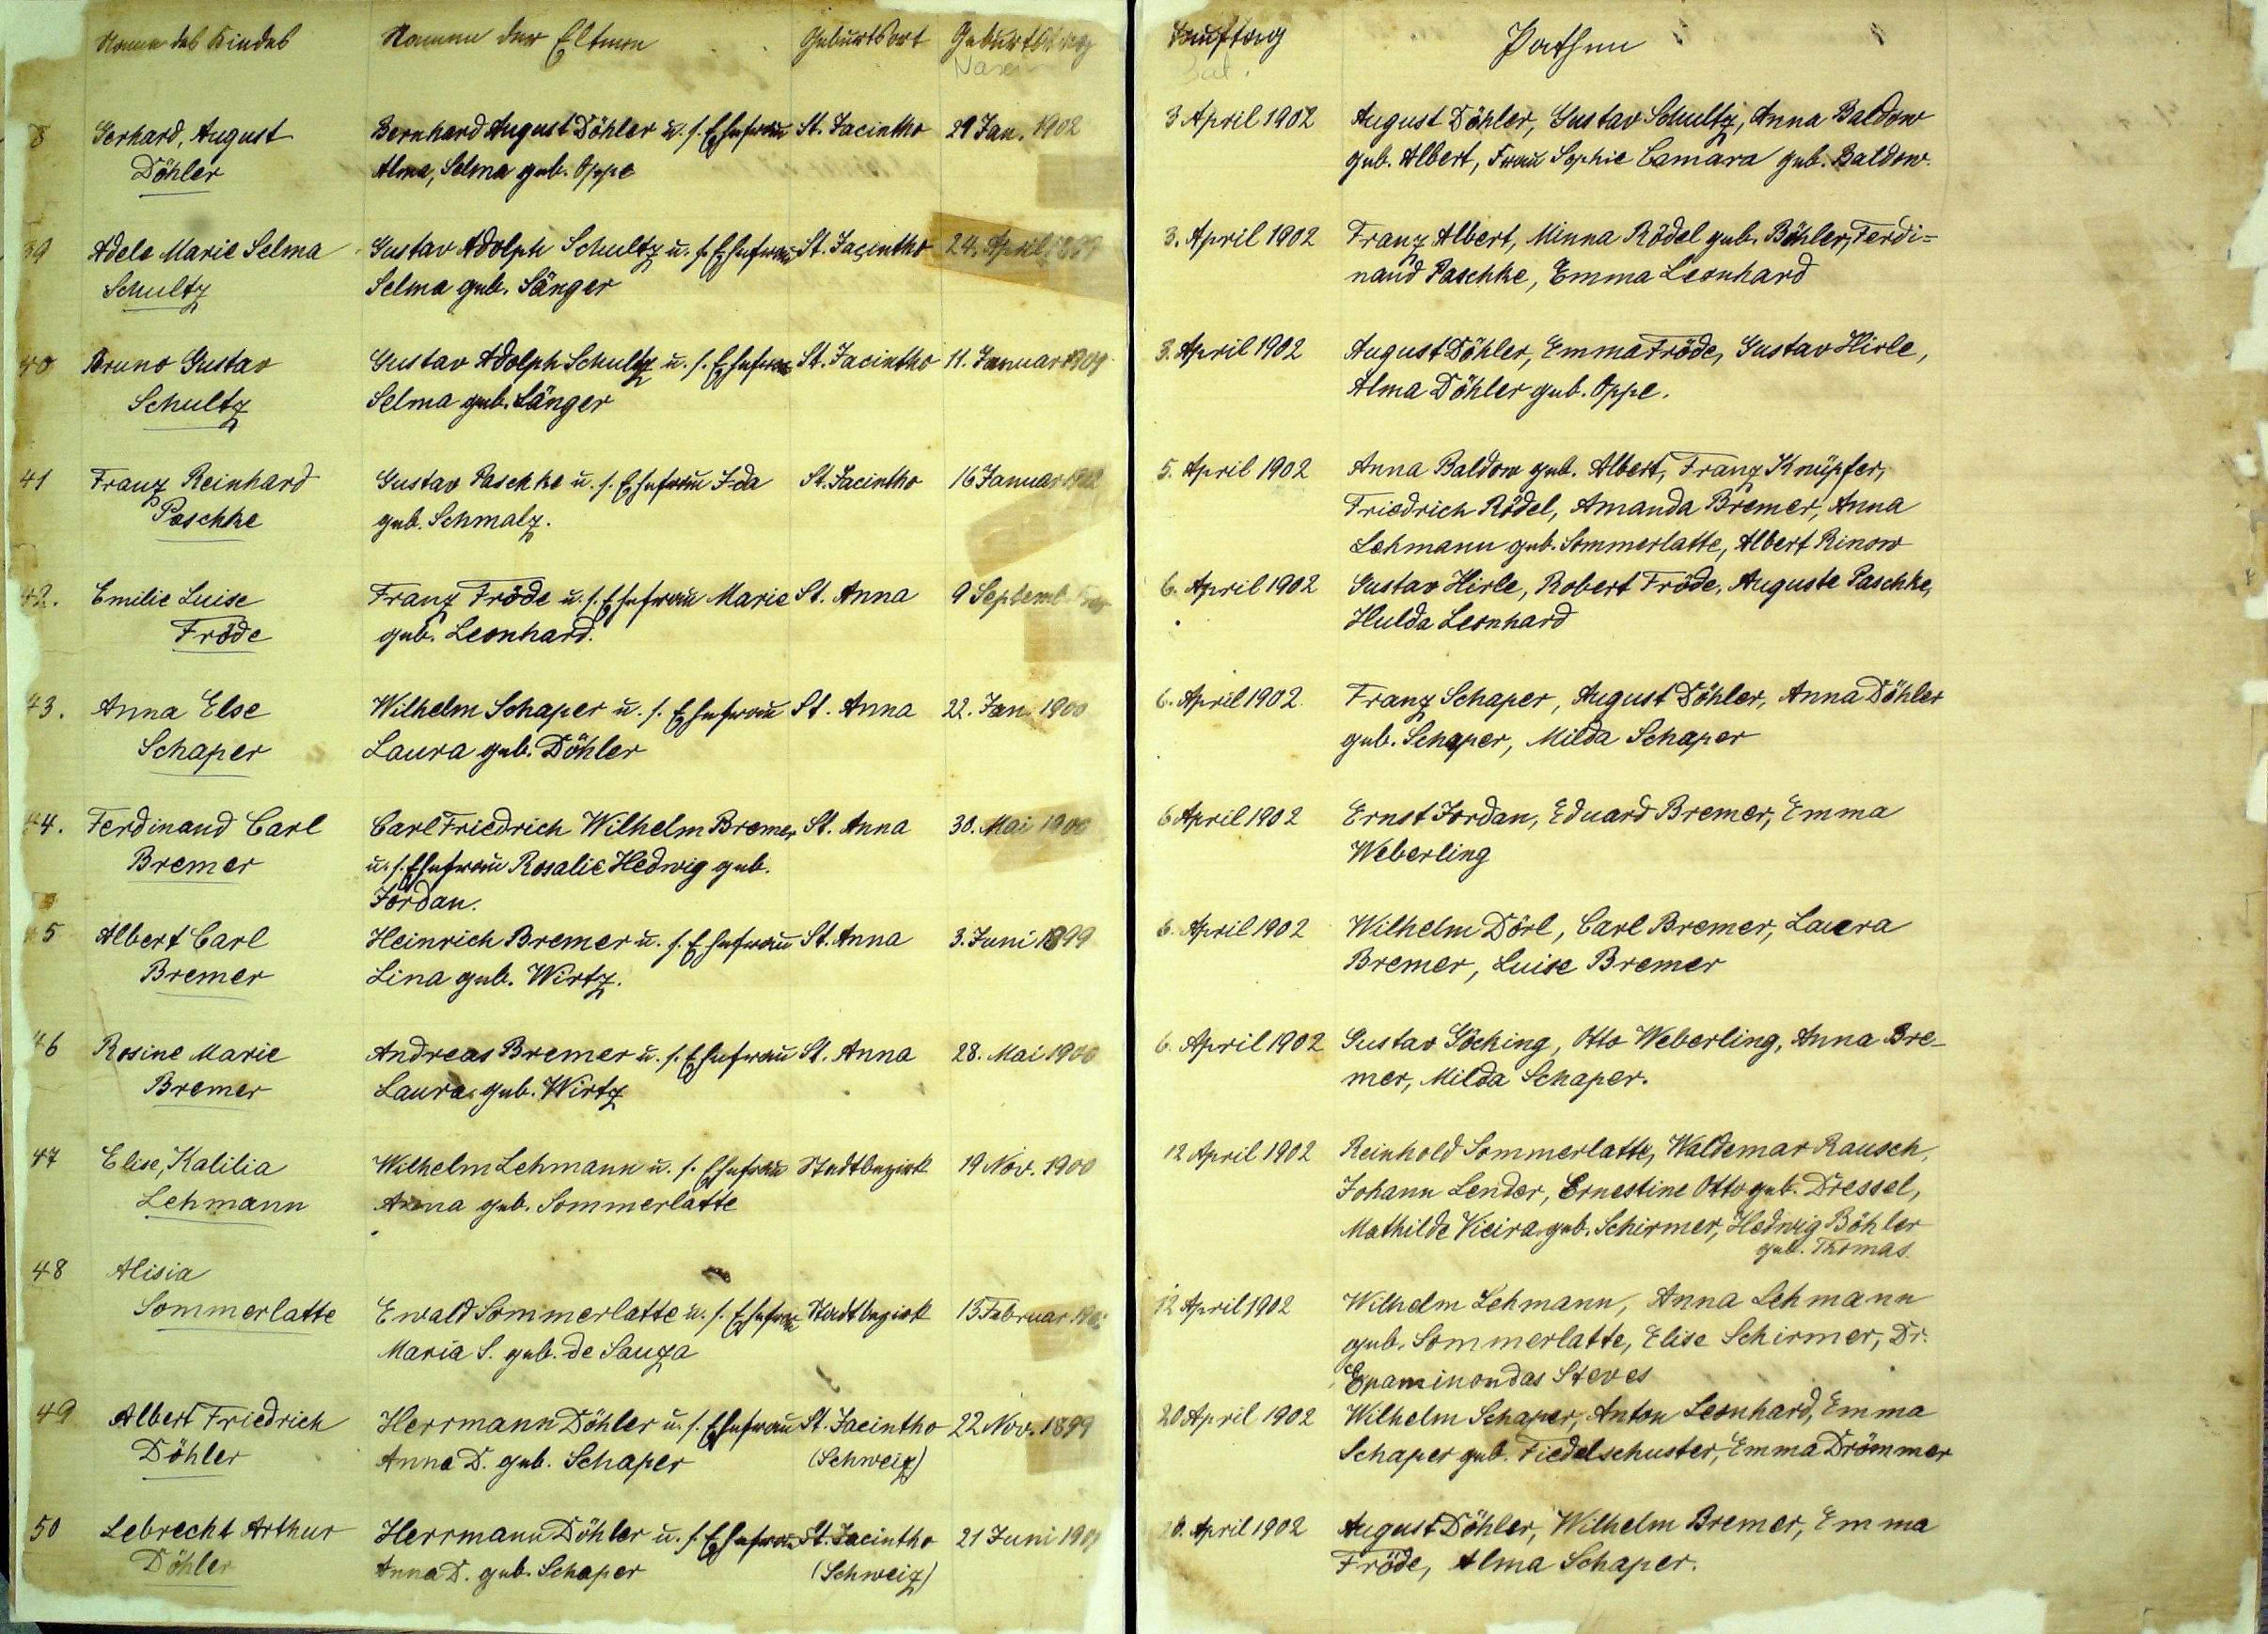 Name des Kindes
Namen der Eltern
Geburtsort
Geburtstag
8 Gerhard, August Bernhard August Döhler u. s. Ehefrau St. Jacintho 29 Jan. 1902
Döhler Alma, Selma geb. Oppe
39 Adele Marie Selma Gustav Adolph Schultz u. s. Ehefrau St. Jacintho 24. April
Schultz Selma geb. Sänger
40 Bruno Gustav Gustav Adolph Schultz u. s. Ehefrau St. Jacintho 11. Januar
Schultz Selma geb. Sänger
41 Franz Reinhard Gustav Paschke u. s. Ehefrau Ida St. Jacintho 16 Januar
Paschke geb. Schmalz.
42. Emilie Luise Franz Fröde u. s. Ehefrau Marie St. Anna 9 Septemb
Fröde geb. Leonhard.
43. Anna Else Wilhelm Schaper u. s. Ehefrau St. Anna 22. Jan. 1900
Schaper Laura geb. Döhler
44. Ferdinand Carl Carl Friedrich Wilhelm Bremer St. Anna 30. Mai 1900
Bremer u. s. Ehefrau Rosalie Hedwig geb.
Jordan.
5 Albert Carl Heinrich Bremer u. s. Ehefrau St. Anna 3. Juni 1899
Bremer Lina geb. Wirtz.
46 Rosine Marie Andreas Bremer u. s. Ehefrau St. Anna 28. Mai 1900
Bremer Laura geb. Wirtz
47 Elise, Kalilia Wilhelm Lehmann u. s. Ehefrau Stadtbezirk 19 Nov. 1900
Lehmann Anna geb. Sommerlatte
48 Alisia
Sommerlatte Ewald Sommerlatte u. s. Ehefrau Stadtbezirk Februar
Maria S. geb. de Sauza
49 Albert Friedrich Herrmann Döhler u. s. Ehefrau St. Jacintho 22 Nov. 1899
Döhler Anna D. geb. Schaper (Schweiz)
50 Lebrecht Arthur Herrmann Döhler u. s. Ehefrau St. Jacintho 21 Juni
Döhler Anna D. geb. Schaper (Schweiz)
Tauftag
Pathen
3 April 1902 August Döhler, Gustav Schultz, Anna Baldow
geb. Albert, Frau Sophie Camara geb. Baldow.
3. April 1902 Franz Albert, Minna Rödel geb. Böhler, Ferdi=
nand Paschke, Emma Leonhard
3. April 1902 August Döhler, Emma Fröde, Gustav Hirle,
Alma Döhler geb. Oppe.
5. April 1902 Anna Baldow geb. Albert, Franz Knüpfer,
Friedrich Rödel, Amanda Bremer, Anna
Lehmann geb. Sommerlatte, Albert Rinow
6. April 1902 Gustav Hirle, Robert Fröde, Auguste Paschke,
Hulda Leonhard
6. April 1902 Franz Schaper, August Döhler, Anna Döhler
geb. Schaper, Milda Schaper
6 April 1902 Ernst Jordan, Eduard Bremer, Emma
Weberling
6. April 1902 Wilhelm Dörl, Carl Bremer, Laura
Bremer, Luise Bremer
6. April 1902 Gustav Göcking, Otto Weberling, Anna Bre-
mer, Milda Schaper.
12 April 1902 Reinhold Sommerlatte, Waldemar Rausch,
Johann Lender, Ernestine Otto geb. Dressel,
Mathilde Vieira geb. Schirmer, Hedwig Böhler
geb. Thomas
12 April 1902 Wilhelm Lehmann, Anna Lehmann
geb. Sommerlatte, Elise Schirmer, Dr.
Epaminondas Steves
20 April 1902 Wilhelm Schaper, Anton Leonhard, Emma
Schaper geb. Fiedelschuster, Emma Drömmer
20. April 1902 August Döhler, Wilhelm Bremer, Emma
Fröde, Alma Schaper.